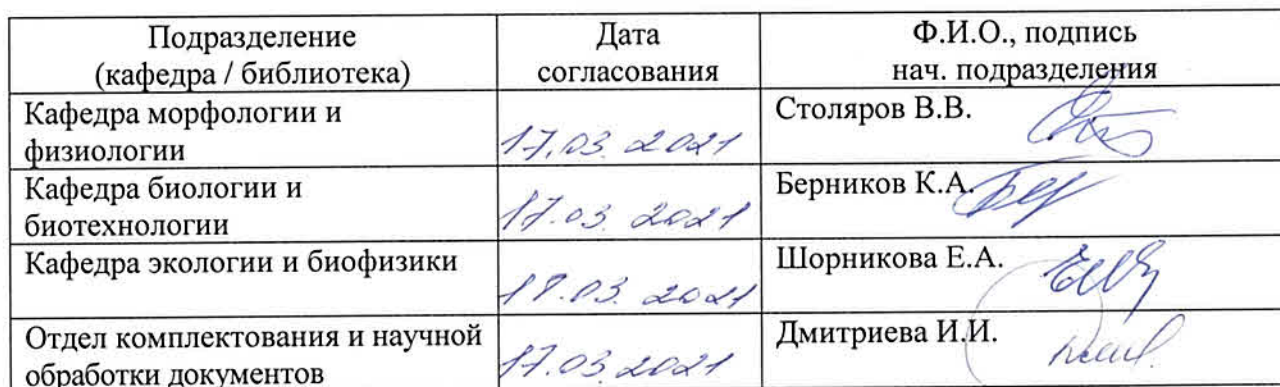 Подразделение
(кафедра / библиотека)
Дата
согласования
Ф.И.О., подпись
нач. подразделения
Кафедра морфологии и
физиологии
17.03.2021
Столяров В.В.
Кафедра биологии и
биотехнологии
17.03.2021
Берников К.А.
Кафедра экологии и биофизики
Шорникова Е.А.
Отдел комплектования и научной
обработки документов
17.03.2021
Дмитриева И.И.